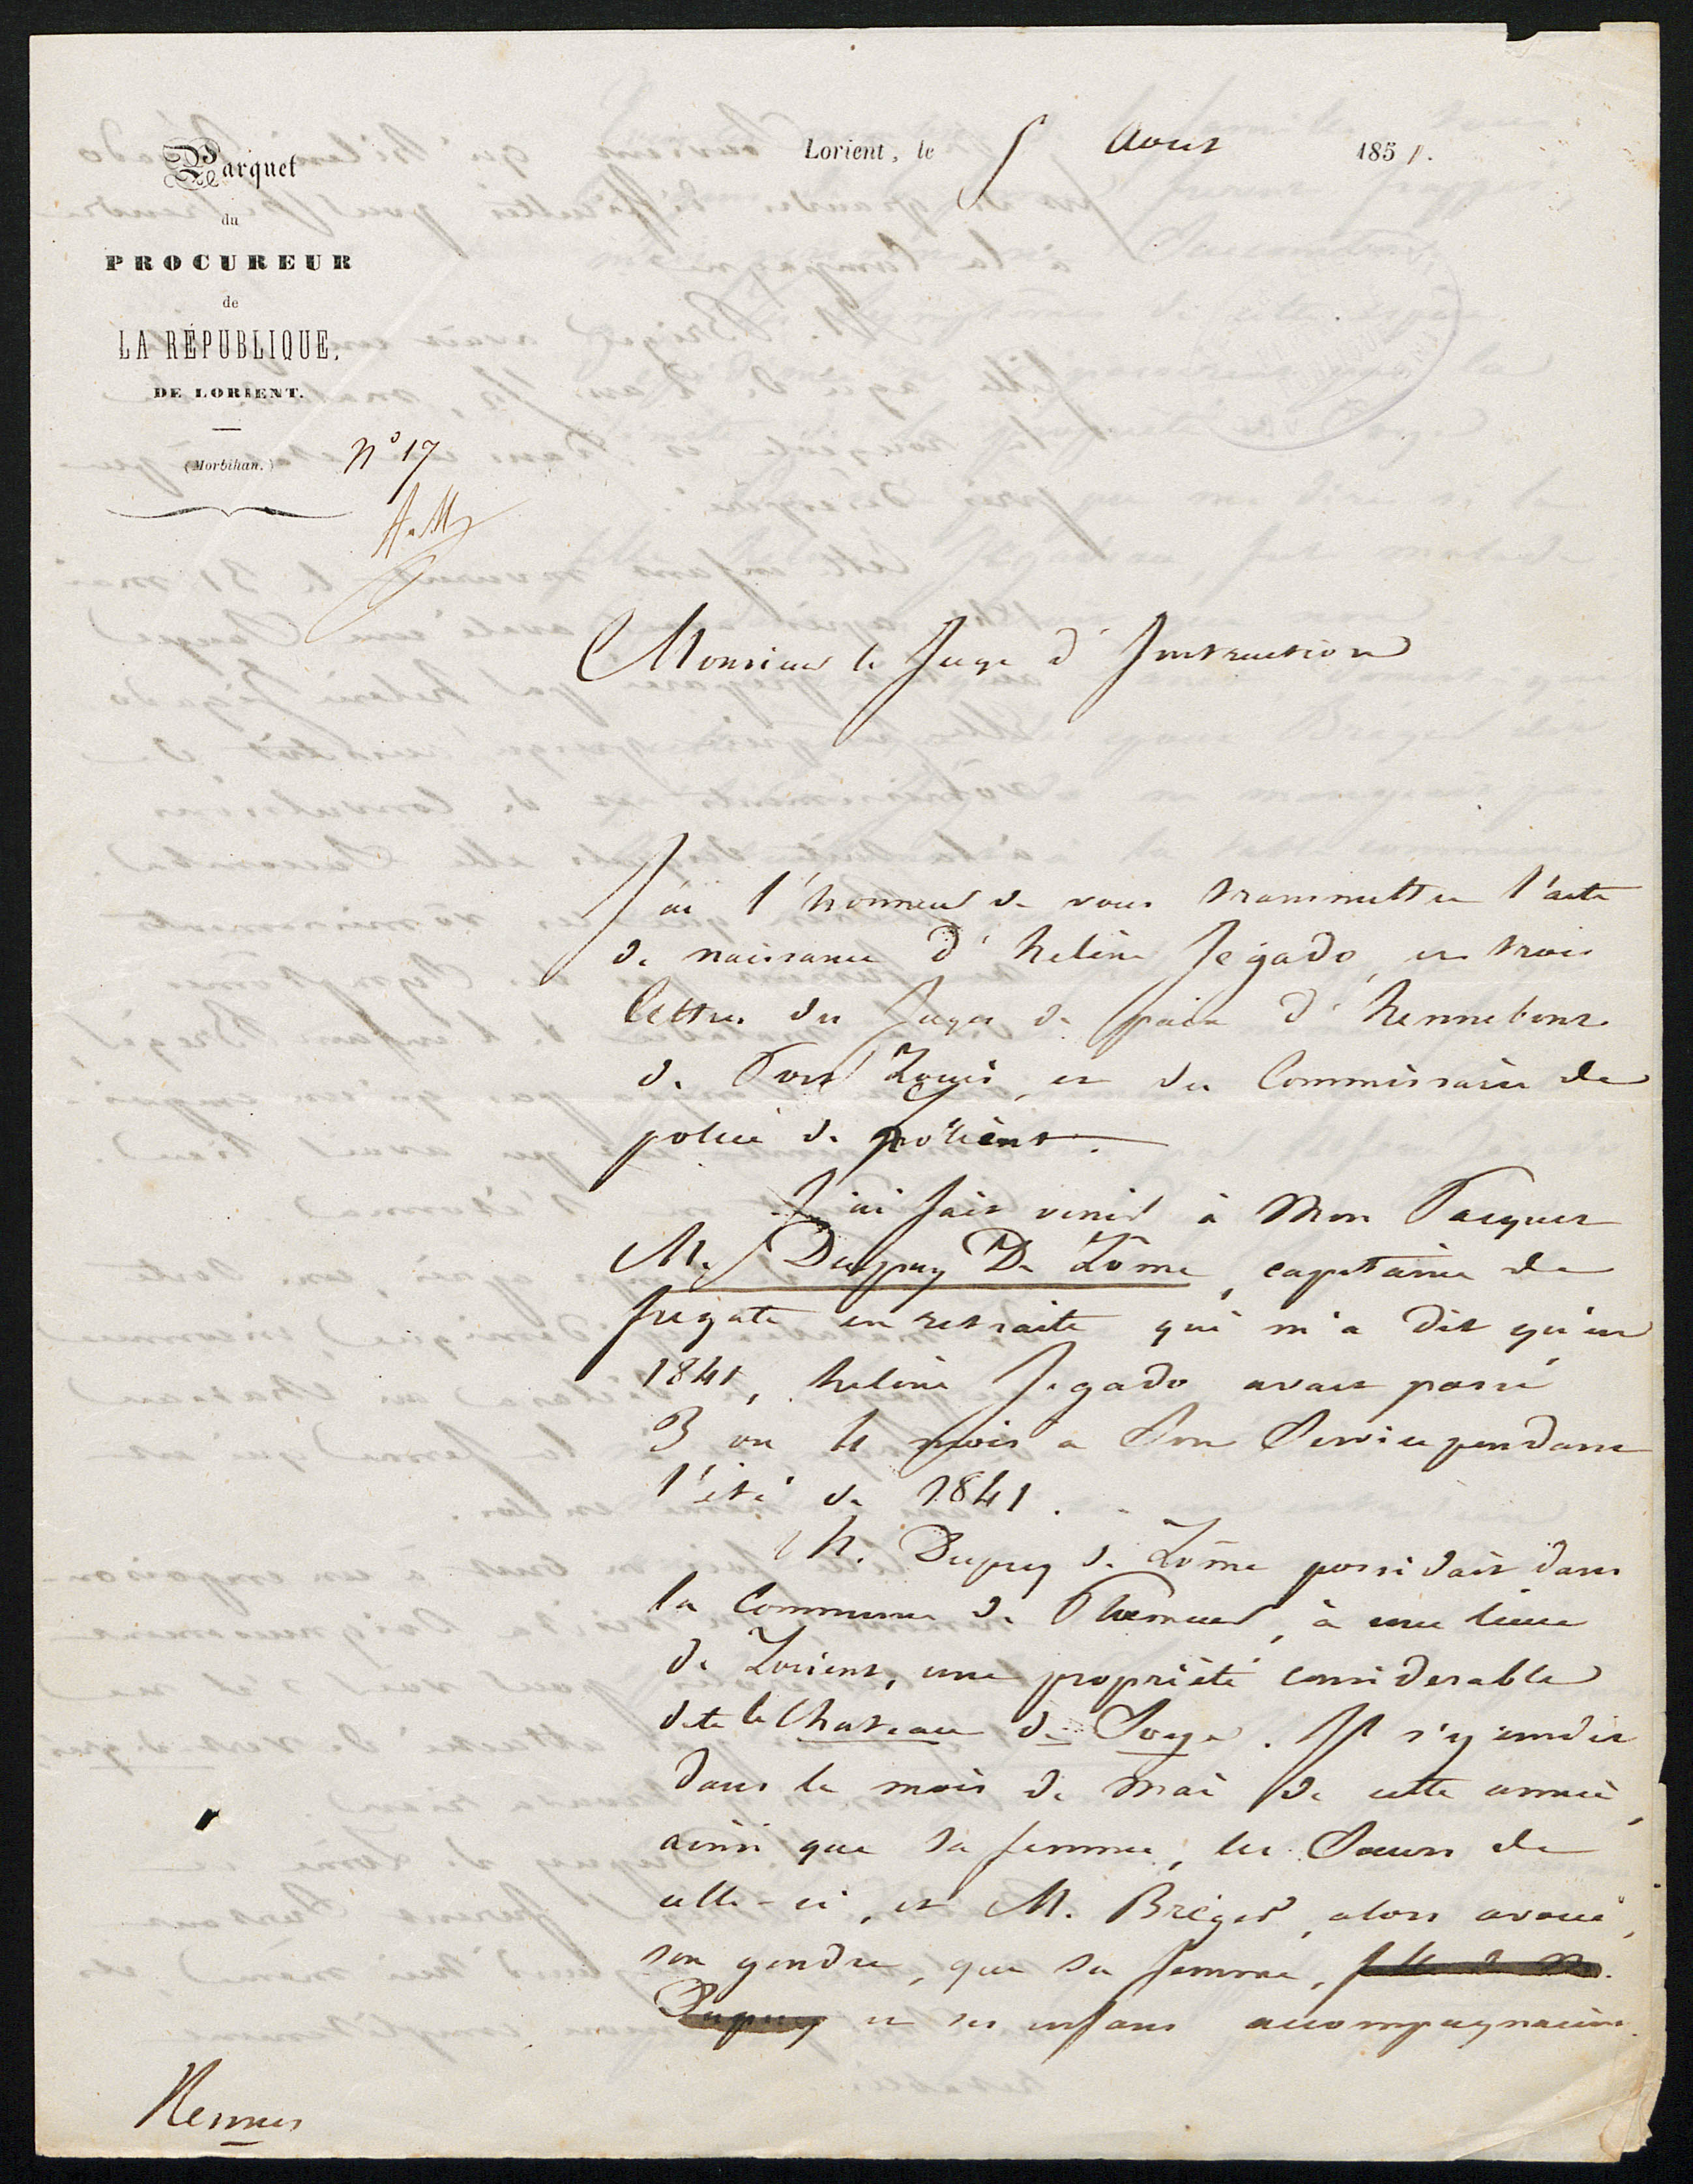 Parquet
du
PROCUREUR
de
LA RÉPUBLIQUE,
DE LORIENT.
(Morbihan.)
N° 17
Lorient, le 5 Aout 1851.
Monsieur le Juge d'Instruction
J'ai l'honneur de vous transmettre l'acte
de naissance d'helène Jegado, et trois
lettres des Juges de paix d'hennebont
de Port Louis, et du Commissaire de
police de
J'ai fait venir à Mon Parquet
M. Dupuy De Lôme, capitaine de
fregate en retraite qui m'a dit qu'en
1841, helène Jegado avait passé
3 ou 4 mois a Son Service pendant
l'été de 1841.
M. Dupuy de Lôme possidait dans
la Commune de Ploemeur, à une lieue
de Lorient, une propriété considerable
dite le Chateau de Soye. Il s'y rendit
dans le mois de Mai de cette année,
ainsi que sa femme, les Soeurs de
celle-ci, et M. Bréger, alors avoué,
son gendre, que sa femme, fille de M.
Dupuy et ses enfans accompagnaient.
Rennes